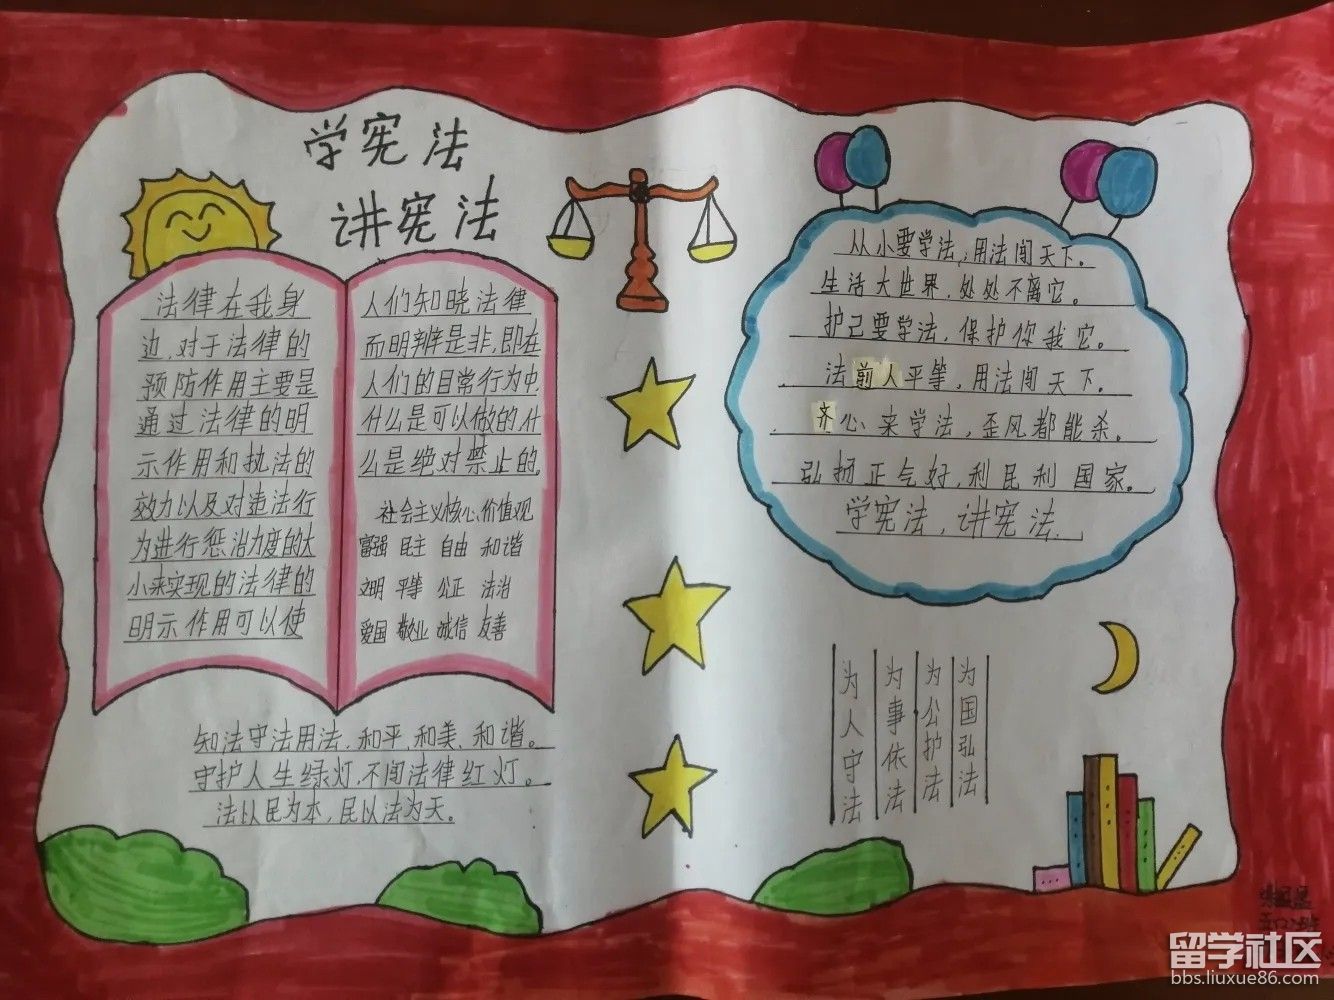 学宪法
讲宪法
法律在我身
边,对于法律的
预防作用主要是
通过法律的明
示作用和执法的
效力以及对违法行
为进行惩治力度的大
小来实现的法律的
明示作用可以使
人们知晓法律
而明辨是非,即在
人们的日常行为中,
什么是可以做的,什
么是绝对禁止的。
社会主义核心价值观
富强 民主 自由 和谐
文明 平等 公正 法治
爱国 敬业 诚信 友善
知法守法用法,和平、和美、和谐。
守护人生绿灯,不闯法律红灯。
法以民为本,民以法为天。
从小要学法,用法闯天下。
生活大世界,处处不离它。
护己要学法,保护你我它。
法前人平等,用法闯天下。
齐心来学法,歪风都能杀。
弘扬正气好,利民利国家。
学宪法,讲宪法.
为人守法
为事依法
为公护法
为国弘法
留学社区
bbs.liuxue86.com